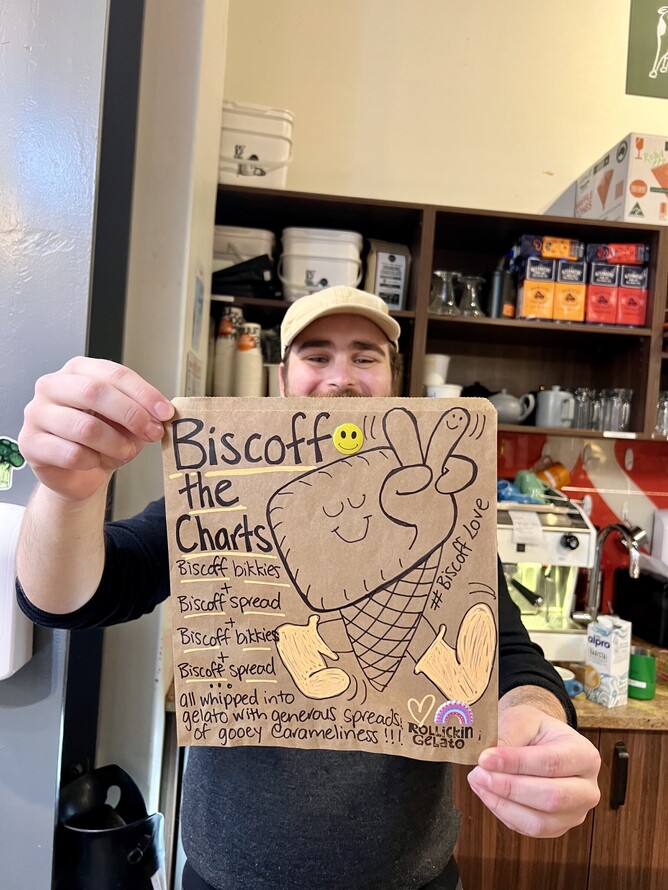 Biscoff
the
Charts
Biscoff bikkies
+
Biscoff spread
+
Biscoff bikkies
+
Biscoff spread
all whipped into
gelato with generous spreads
of gooey carameliness !!!
#Biscoff Love
ROLLICKIN
GELATO
alpro